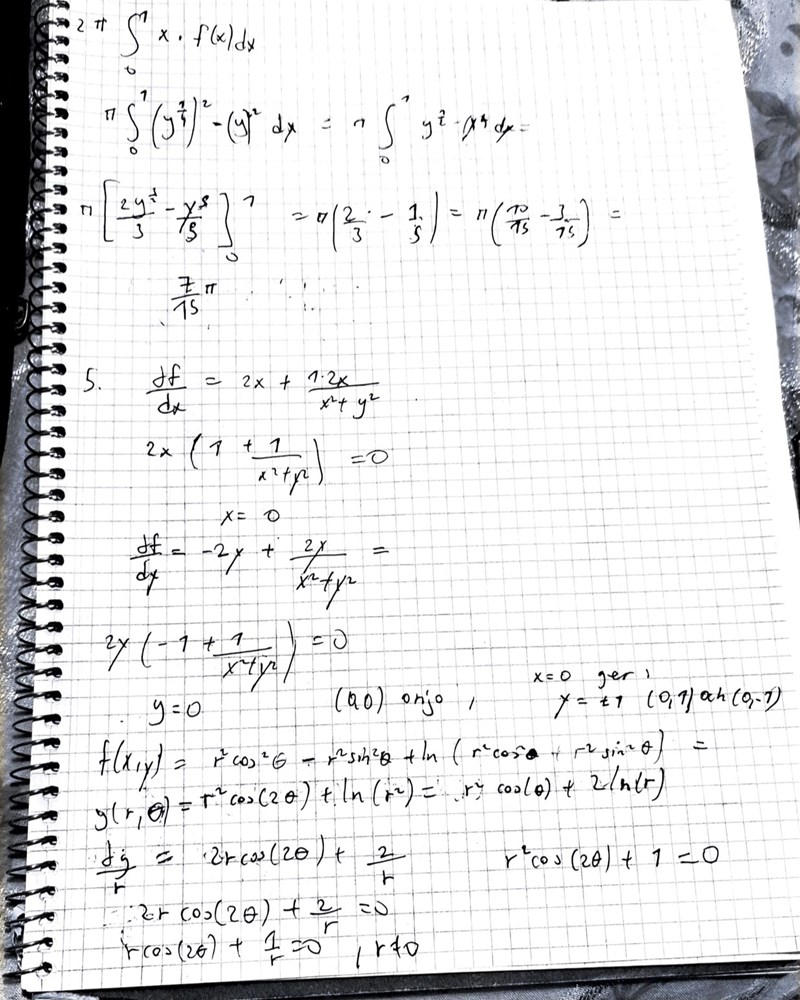 2π ∫₀¹ x · f(x) dx
π ∫₀¹ (y^{1/4})² - (y)² dx = π ∫₀¹ y^{1/2} - x⁴ dx =
π [ 2y^{3/2}/3 - y⁵/5 ]₀¹ = π (2/3 - 1/5) = π (10/15 - 3/15) =
7/15 π
5. df/dx = 2x + 1·2x/(x²+y²)
2x (1 + 1/(x²+y²)) = 0
x = 0
df/dy = -2y + 2y/(x²+y²) =
2y (-1 + 1/(x²+y²)) = 0
x=0 ger
y=0 (0,0) , y = ±1 (0,1) och (0,-1)
f(x,y) = r²cos²θ - r²sin²θ + ln (r²cos²θ + r²sin²θ) =
g(r,θ) = r²cos(2θ) + ln(r²) = r² cos(θ) + 2ln(r)
dg/r = 2rcos(2θ) + 2/r r²cos(2θ) + 1 = 0
2r cos(2θ) + 2/r = 0
rcos(2θ) + 1/r = 0 , r≠0